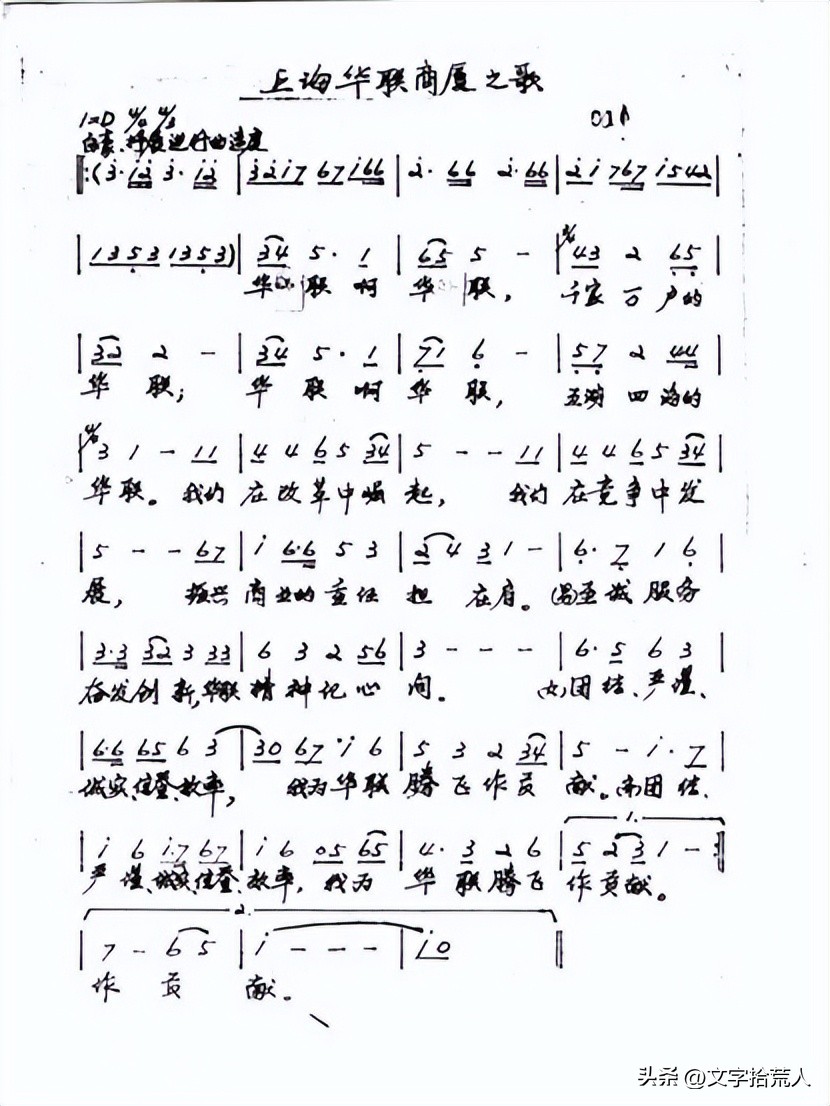 上海华联商厦之歌
1=D 4/4 3/4
自豪、行进的速度
‖:(3· 12 3· 12 | 3217 67166 | 2· 66 2· 66 | 21767 1542 |
| 1353 1353) | 34 5· 1 | 65 5 - | 43 2 65 |
华联啊 华联, 千家万户的
| 32 2 - | 34 5· 1 | 71 6 - | 57 2 44 |
华联; 华联啊华联, 五湖四海的
| 3 1 - 11 | 4 4 6 5 34 | 5 - - 11 | 4 4 6 5 34 |
华联。我们在改革中崛起, 我们在竞争中发
| 5 - - 67 | i 6·6 5 3 | 2 4 3 1 - | 6· 7 1 6 |
展, 振兴商业的重任担在肩。(男)至诚服务
| 3·3 32 3 33 | 6 3 2 56 | 3 - - - | 6· 5 6 3 |
奋发创新,华联精神记心间。 (女)团结、严谨、
| 6·6 65 6 3 | 30 67 ·i 6 | 5 3 2 34 | 5 - i· 7 |
诚实、信誉、效率, 我为华联腾飞作贡献。(齐)团结、
1.
| i 6 i·7 67 | i 6 05 65 | 4· 3 2 6 | 5 2 3 1 - :‖
严谨、诚实、信誉、效率,我为华联腾飞作贡献。
2.
| 7 - 6 5 | i - - - | i0 ‖
作贡献。
头条 @文字拾荒人